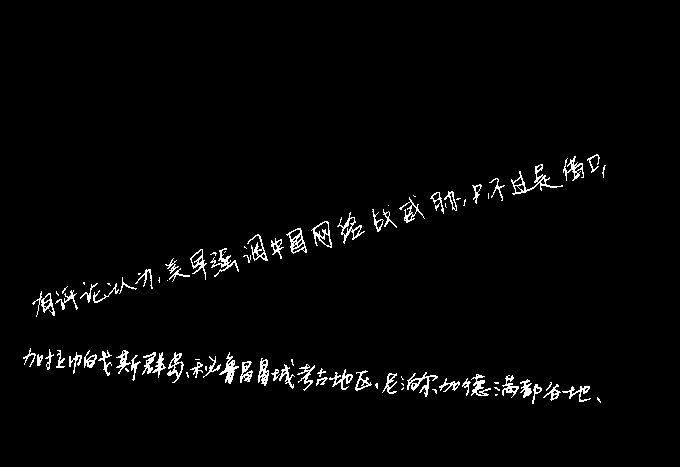 有评论认为,美军强调中国网络战威胁,只不过是借口,
加拉帕戈斯群岛、秘鲁昌昌城考古地区、尼泊尔加德满都谷地、